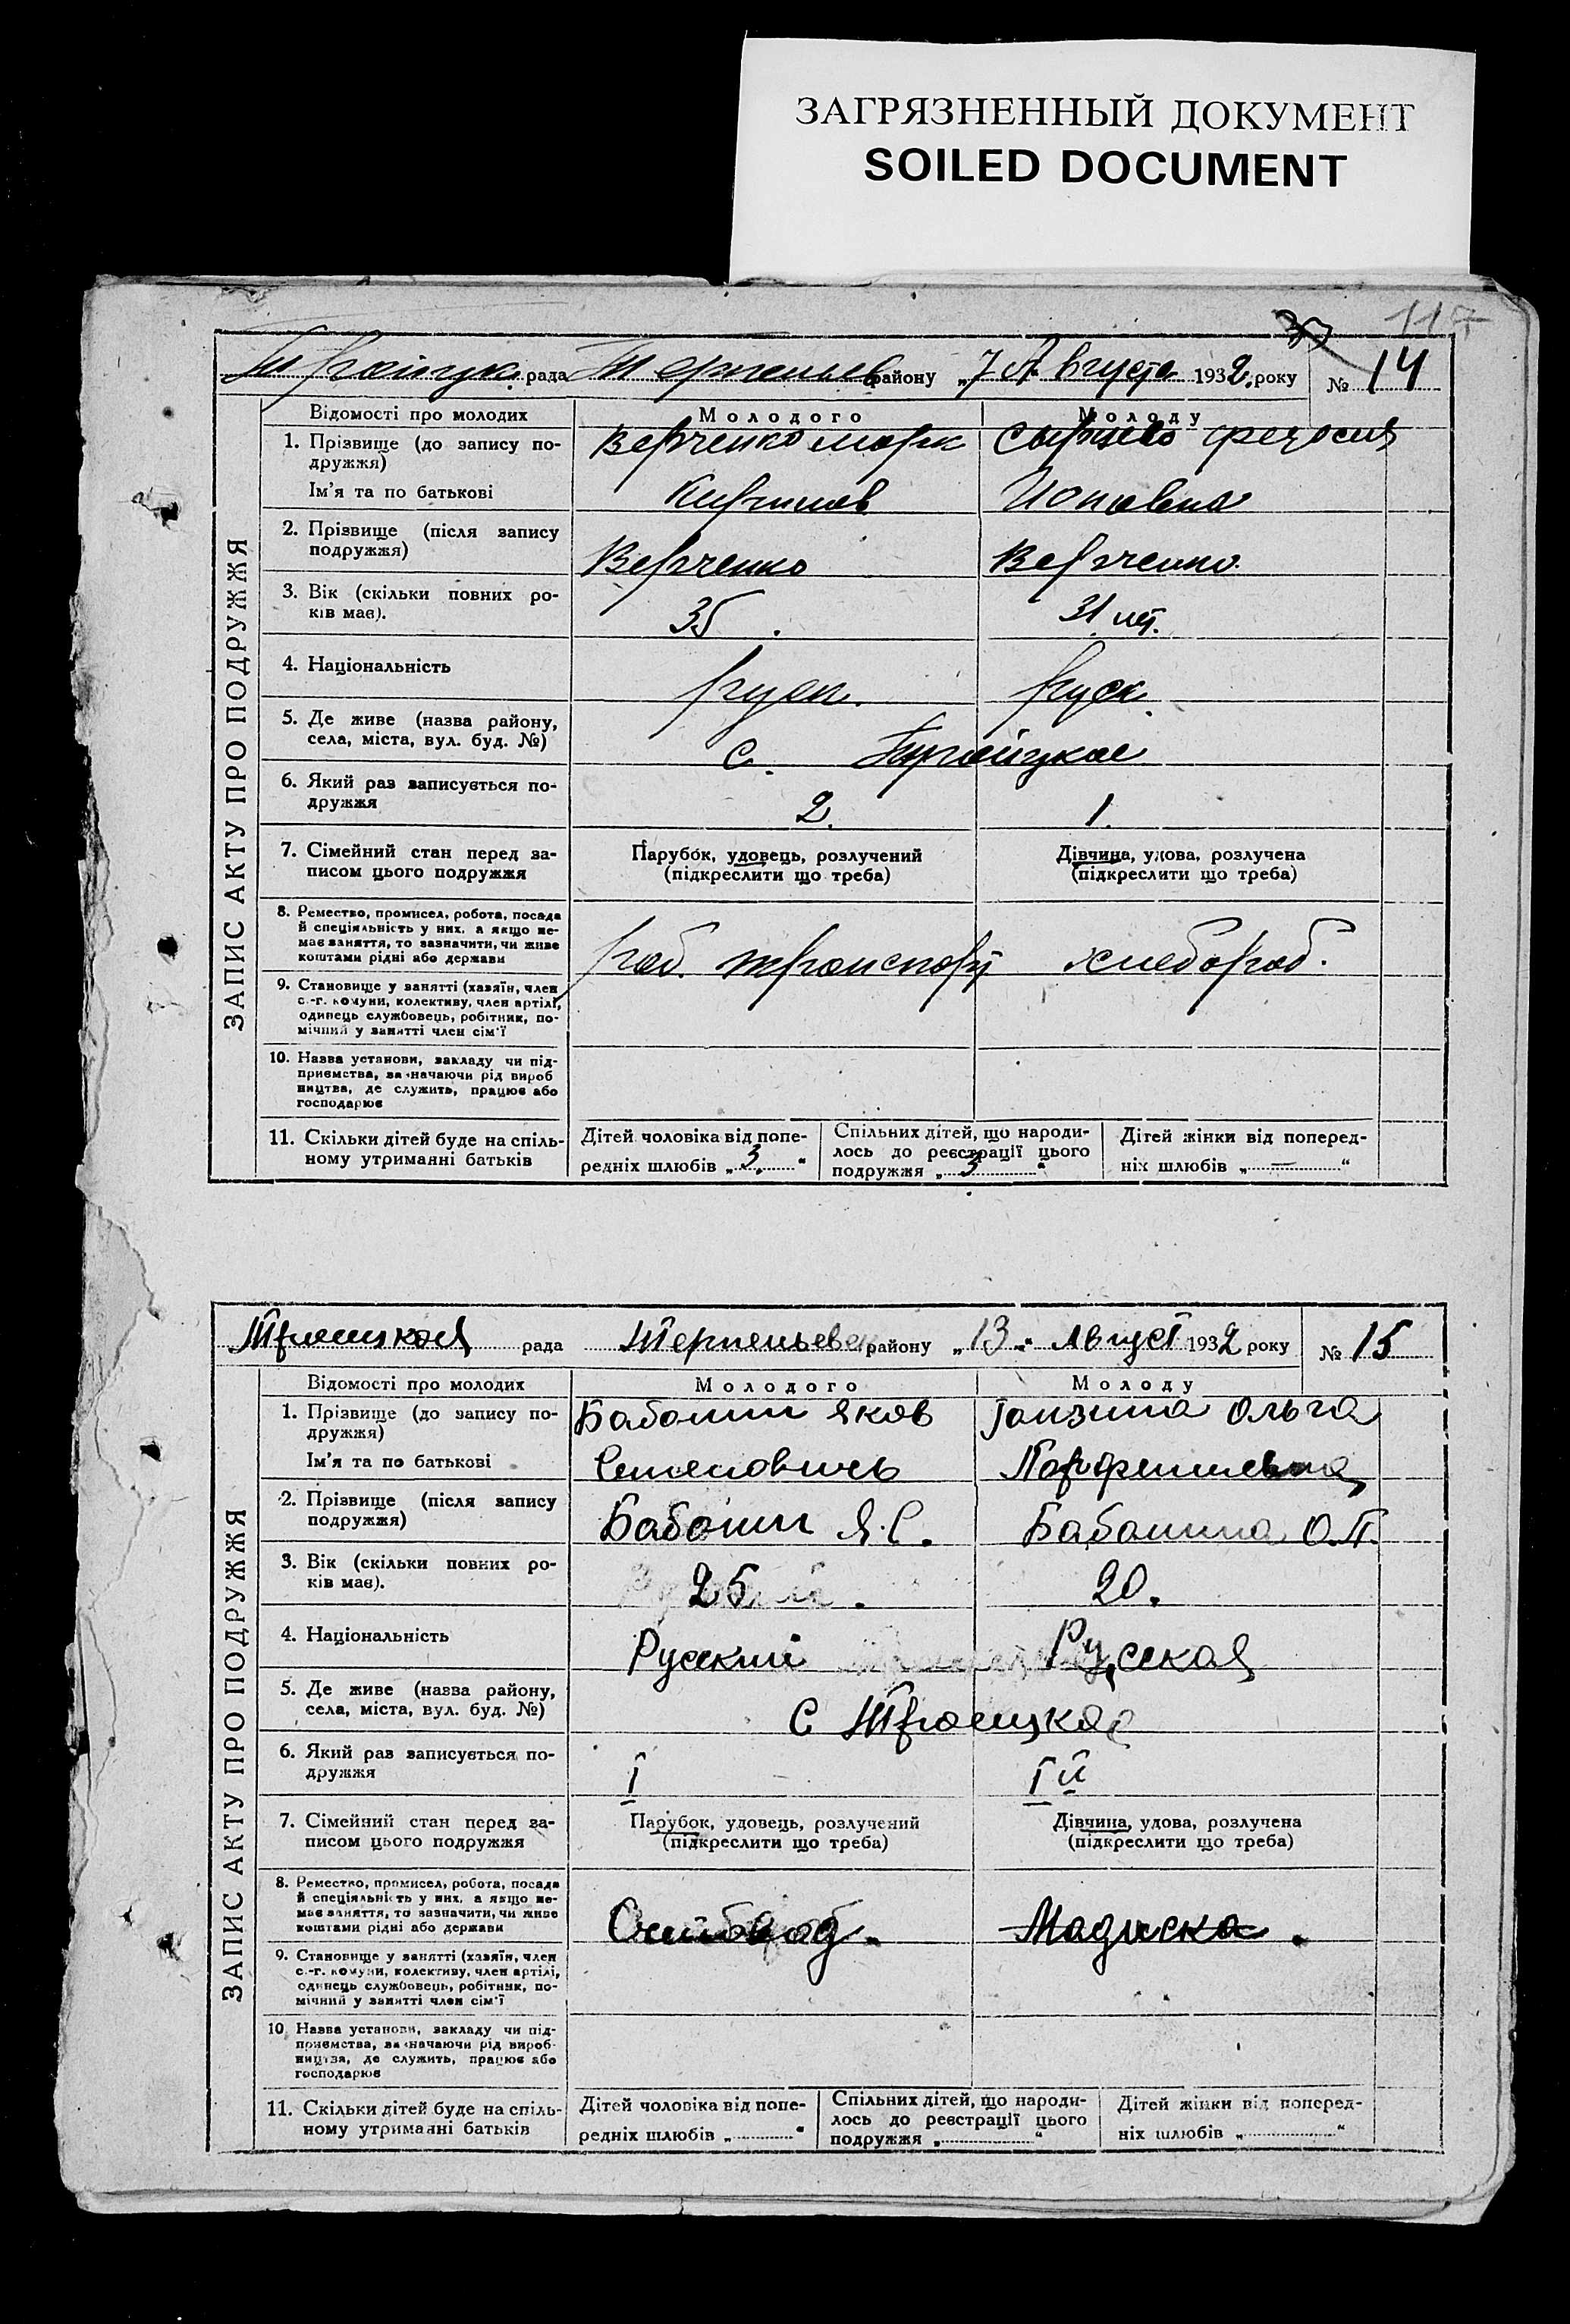 ЗАГРЯЗНЕННЫЙ ДОКУМЕНТ
SOILED DOCUMENT
117
37
Троицк. рада Терпеньев району „7 Августа 1932. року № 14
ЗАПИС АКТУ ПРО ПОДРУЖЖЯ
Відомості про молодих Молодого Молоду
1. Прізвище (до запису по- Верченко Марк
дружжя)
Ім’я та по батькові
2. Прізвище (після запису
подружжя) Верченко Верченко.
3. Вік (скільки повних ро- 35. 31 лет.
ків має).
4. Національність руск. руск.
5. Де живе (назва району, с. Троицкое
села, міста, вул. буд. №)
6. Який раз записується по- 2. 1.
дружжя
7. Сімейний стан перед за- Парубок, удовець, розлучений Дівчина, удова, розлучена
писом цього подружжя (підкреслити що треба) (підкреслити що треба)
8. Ремество, промисел, робота, посада
й спеціяльність у них, а якщо не-
має заняття, то зазначити, чи живе
коштами рідні або держави раб. транспорт хлебороб.
9. Становище у занятті (хазяїн, член
с.-г. комуни, колективу, член артілі,
одинець службовець, робітник, по-
мічний у занятті член сім’ї
10. Назва установи, закладу чи під-
приємства, зазначаючи рід вироб
ництва, де служить, працює або
господарює
11. Скільки дітей буде на спіль- Дітей чоловіка від попе- Спільних дітей, що народи- Дітей жінки від поперед-
ному утриманні батьків редніх шлюбів „3.“ лось до реєстрації цього ніх шлюбів „—“
подружжя „3“
Троицкая рада Терпеньевск району „13“ Август 1932 року № 15
ЗАПИС АКТУ ПРО ПОДРУЖЖЯ
Відомості про молодих Молодого Молоду
1. Прізвище (до запису по- Бабанин Яков Ганзина Ольга
дружжя)
Ім’я та по батькові Семеновичь Парфентьевна
2. Прізвище (після запису Бабанин Я.С. Бабанина О.П.
подружжя)
3. Вік (скільки повних ро- 25. 20.
ків має).
4. Національність Русский Русская
5. Де живе (назва району, с Троицкое
села, міста, вул. буд. №)
6. Який раз записується по- I Iй
дружжя
7. Сімейний стан перед за- Парубок, удовець, розлучений Дівчина, удова, розлучена
писом цього подружжя (підкреслити що треба) (підкреслити що треба)
8. Ремество, промисел, робота, посада
й спеціяльність у них, а якщо не-
має заняття, то зазначити, чи живе
коштами рідні або держави
9. Становище у занятті (хазяїн, член
с.-г. комуни, колективу, член артілі,
одинець службовець, робітник, по-
мічний у занятті член сім’ї
10. Назва установи, закладу чи під-
приємства, зазначаючи рід вироб-
ництва, де служить, працює або
господарює
11. Скільки дітей буде на спіль- Дітей чоловіка від попе- Спільних дітей, що народи- Дітей жінки від поперед-
ному утриманні батьків редніх шлюбів „“ лось до реєстрації цього ніх шлюбів „“
подружжя „“